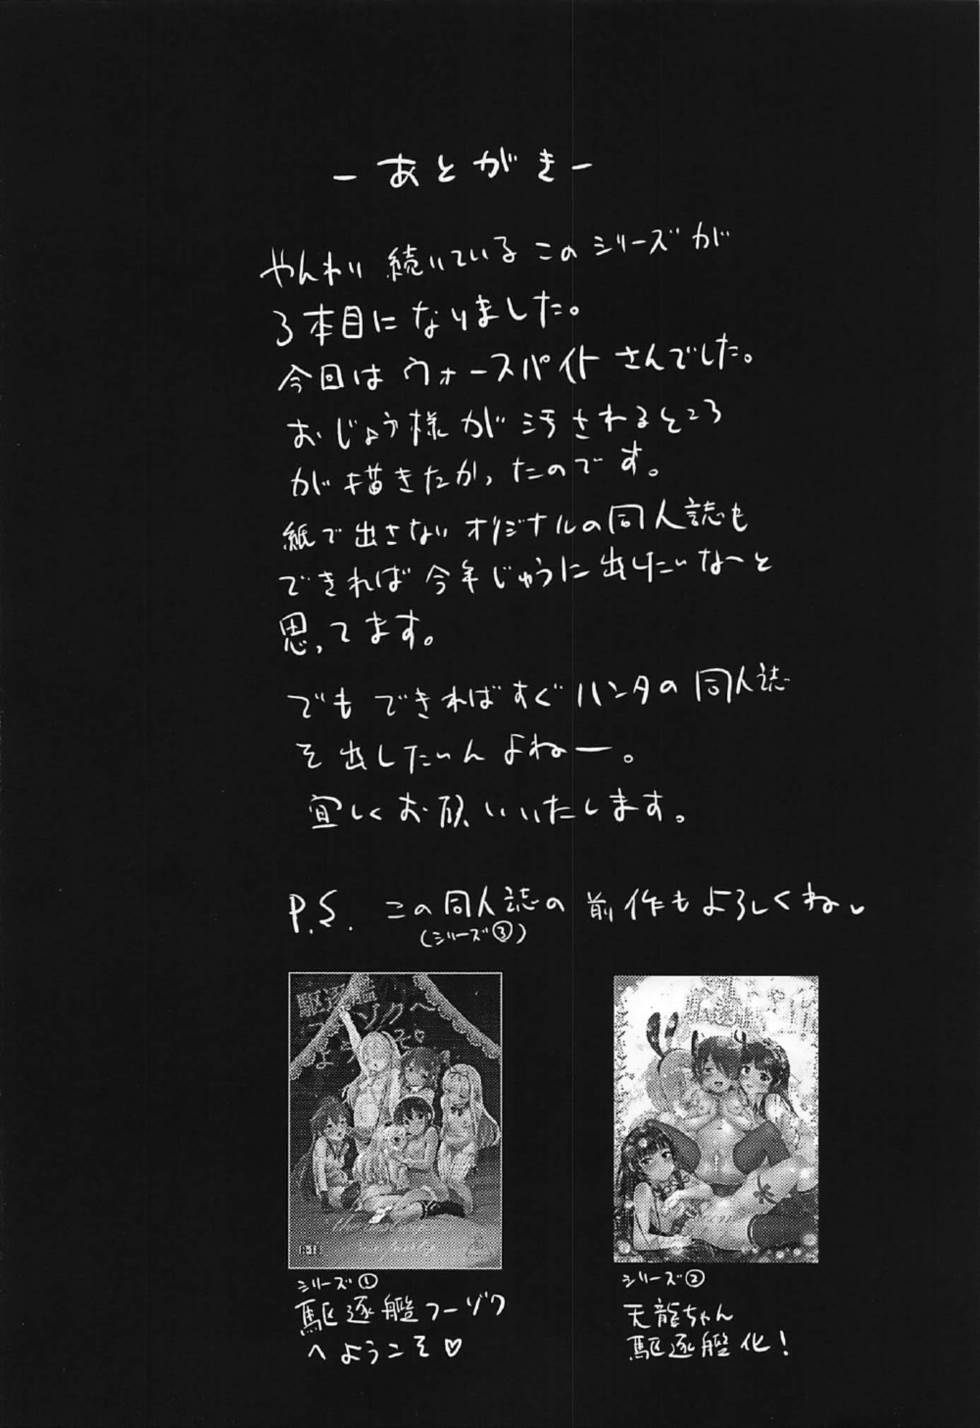 －あとがき－
やんわり続いているこのシリーズが
3本目になりました。
今回はウォースパイトさんでした。
おじょう様が汚されるところ
が描きたかったのです。
紙で出さないオリジナルの同人誌も
できれば今年じゅうに出したいなーと
思ってます。
でもできればすぐハンタの同人誌
を出したいんよねー。
宜しくお願いいたします。
P.S. この同人誌の前作もよろしくね
(シリーズ③)
駆逐艦フーゾクへ
ようこそ
R-18
シリーズ①
駆逐艦フーゾク
へようこそ♡
シリーズ②
天龍ちゃん
駆逐艦化!